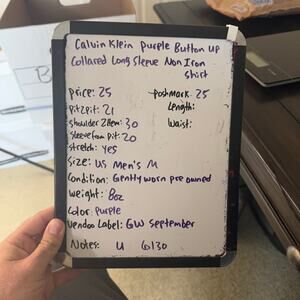 Calvin Klein Purple Button Up
Collared Long Sleeve Non Iron
Shirt
Price: 25
Poshmark: 25
Pit2pit: 21
Length:
Shoulder 2 Hem: 30
Waist:
Sleeve from Pit: 20
Stretch: yes
Size: US Men's M
Condition: Gently worn pre owned
Weight: 8oz
Color: Purple
Vendoo Label: GW September
Notes: U 6130